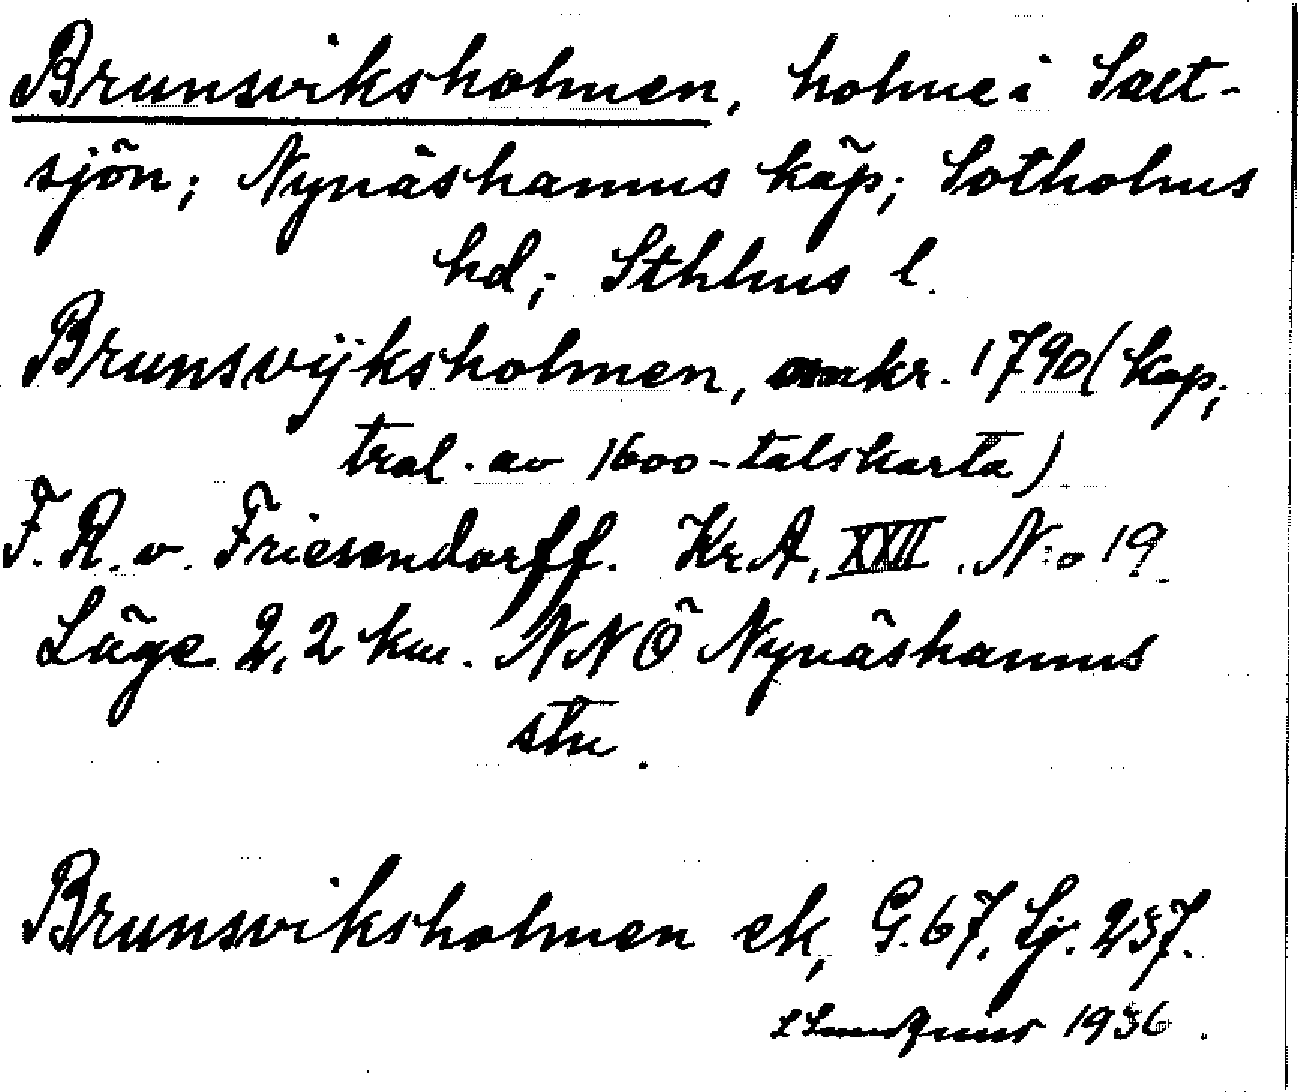 Brunsviksholmen, holme i Salt-
sjön; Nynäshamns köp; Sotholms
hd; Sthlms l.
Brunsvijksholmen, omkr. 1790 (kop;
tral. av 1600-talskarta)
F. R. v. Friesendorff. Kr A, XXII. N:o 19
Läge 2,2 km. NNÖ Nynäshamns
stn.
Brunsviksholmen ek, G. 67. Sj. 257.
1936.